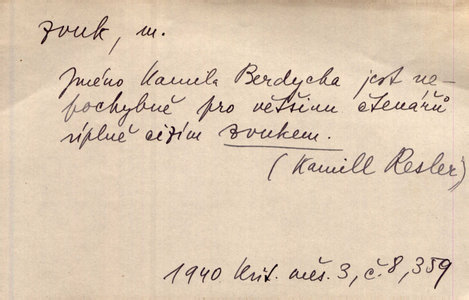 zvuk, m.
Jméno Kamila Berdycha jest ne-
pochybně pro většinu čtenářů
úplně cizím zvukem.
(Kamill Resler)
1940 Krit. měs. 3, č. 8, 359